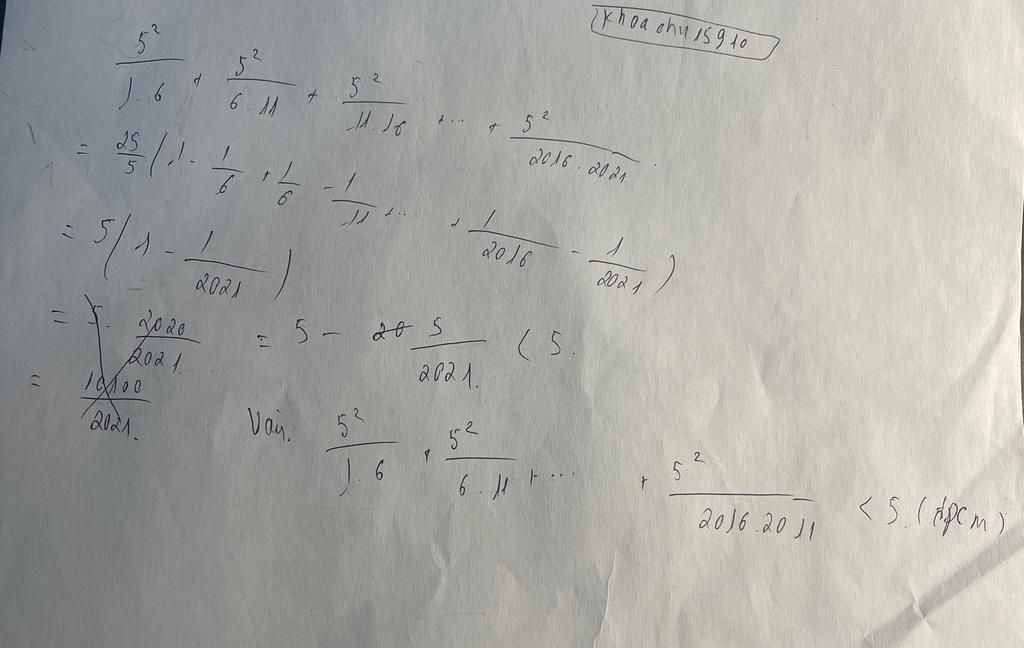 khoachu15910
5²/1.6 + 5²/6.11 + 5²/11.16 + ... + 5²/2016.2021
= 25/5 (1 - 1/6 + 1/6 - 1/11 + ... + 1/2016 - 1/2021)
= 5(1 - 1/2021)
= 5. 2020/2021 = 5 - 5/2021 < 5.
= 10100/2021.
Vậy. 5²/1.6 + 5²/6.11 + ... + 5²/2016.2011 < 5. (đpcm)